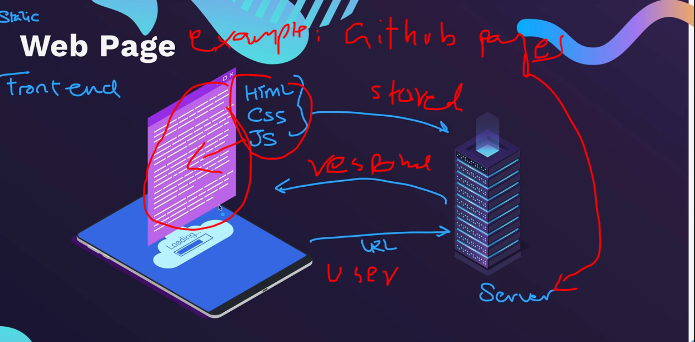 Static
Web Page example: Github pages
Frontend
HTML
CSS
JS
stored
respond
Loading...
URL
user
Server